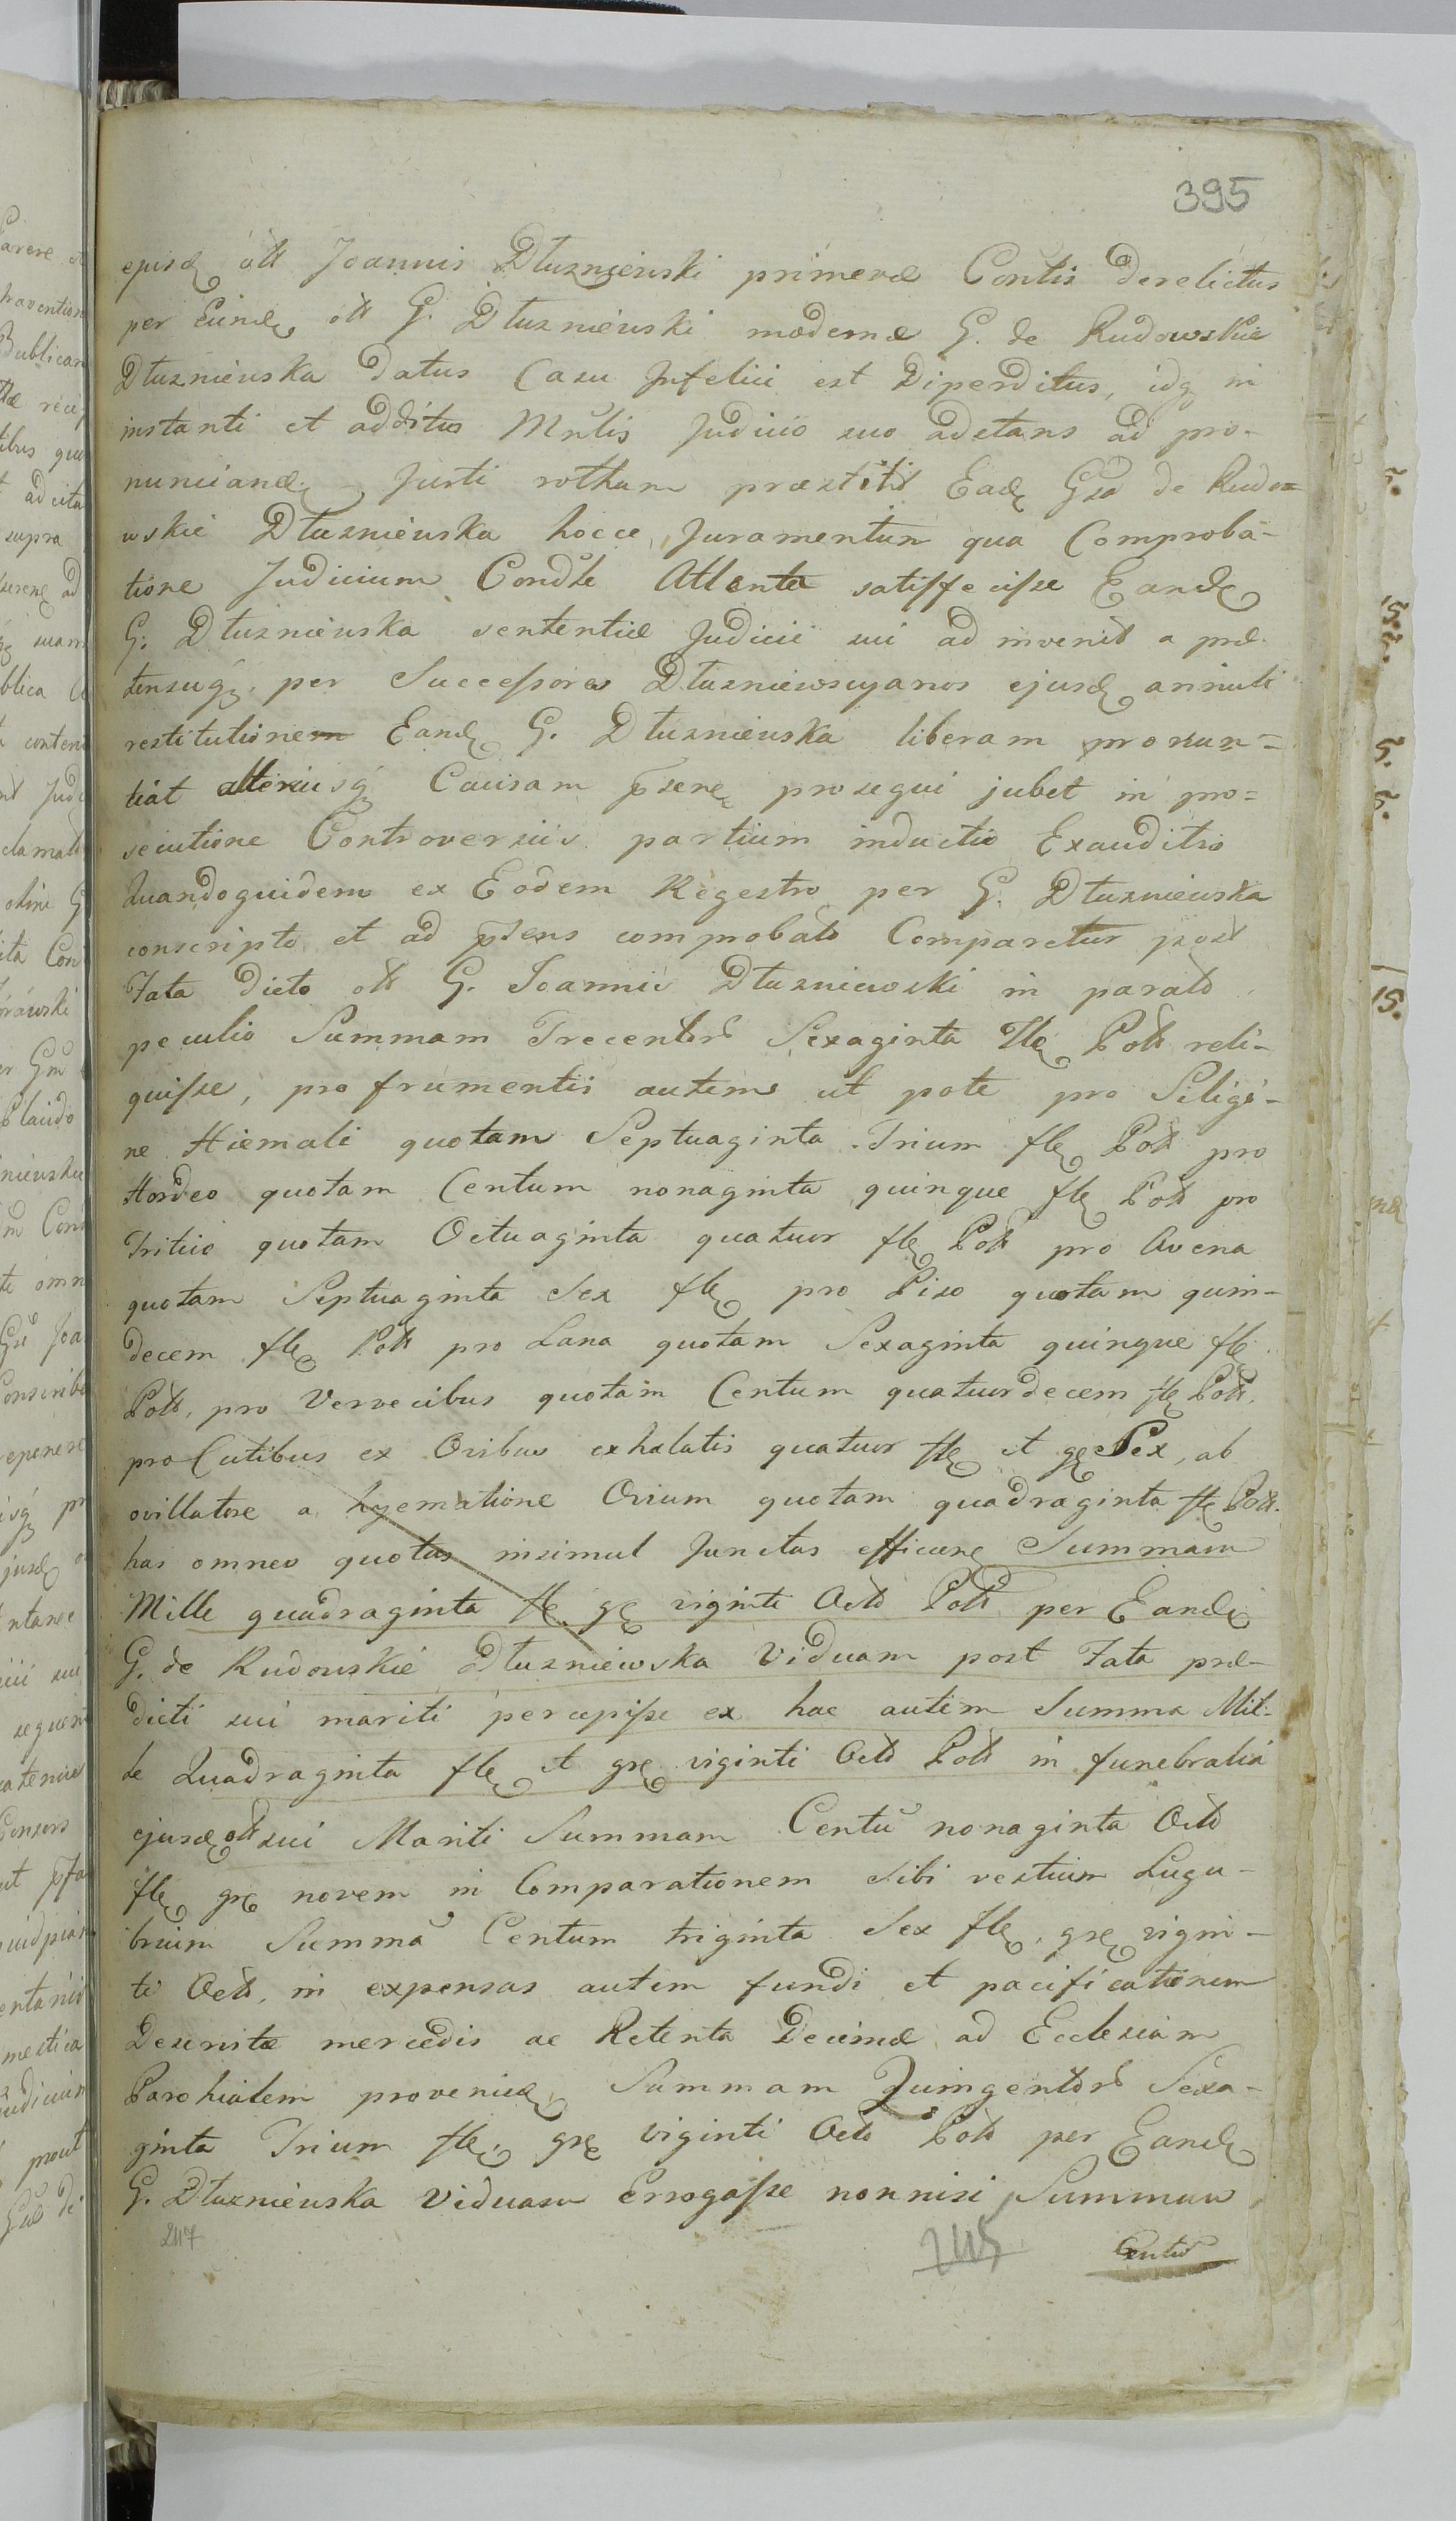 395
ejusd olt Joannis Dłuzniewski primevæ Contis derelictus
per Eund olt G. Dłuzniewski modernæ G. de Rudowskie
Dłuzniewska datus Casu Infelici est Diperditus, idq in
instanti et additus Mnlis Judicio suo adstans ad pro-
nunciand Justi rotham præstitit Ead Gsa de Rudo=
wskie Dłuzniewska hocce Juramentum qua Comproba-
tione Judicium Condle Attenta satisfecisse Eand
G. Dłuzniewska sententiæ Judicii sui ad invenit a præ-
tensaq per Successores Dłuzniewscyanos ejusd annuli
restitutionem Eand G. Dłuzniewska liberam pronun=
tiat alteriusq Causam psene prosequi jubet in pro=
secutione Controversiis partium inductis Exauditis
Quandoquidem ex Eodem Regestro per G. Dłuzniewska
conscripto et ad psens comprobato Comparetur post
Fata dicto olt G. Joannis Dłuzniewski in parato
peculio Summam Trecentor Sexaginta fle Poll reli-
quisse, pro frumentis autem ut pote pro Siligi-
ne Hiemali quotam Septuaginta Trium fle Poll pro
Hordeo quotam Centum nonaginta quinque fle Poll pro
Tritico quotam Octuaginta quatuor fle Poll pro Avena
quotam Septuaginta Sex fle pro Piso quotam quin-
decem fle Poll pro Lana quotam Sexaginta quinque fle
Poll, pro Vervecibus quotam Centum quatuordecem fle Poll,
pro Cutibus ex Ovibus exhalatis quatuor fle et gr Sex, ab
ovillatore a hyematione Ovium quotam quadraginta fle Poll.
has omnes quotas insimul Junctas efficiene Summam
Mille quadraginta fle gr viginti Octo Poll per Eand
G. de Rudowskie Dłuzniewska Viduam post Fata præ-
dicti sui mariti percepisse ex hac autem Summa Mil-
le Quadraginta fle et gr viginti Octo Poll in funebralia
ejusd olt sui Mariti Summam Centu nonaginta Octo
fle gr novem in Comparationem Sibi vestium Lugu-
brium Summa Centum triginta Sex fle, gr vigin-
ti Octo, in expensas autem fundi et pacificationem
Deservitæ mercedis ac Retenta Decimæ ad Ecclesiam
Parohialem provenien Summam Quingentor Sexa-
ginta Trium fle, gr viginti Octo Poll per Eand
G. Dłuzniewska Viduam Errogasse nonnisi Summam
Centu
247
245